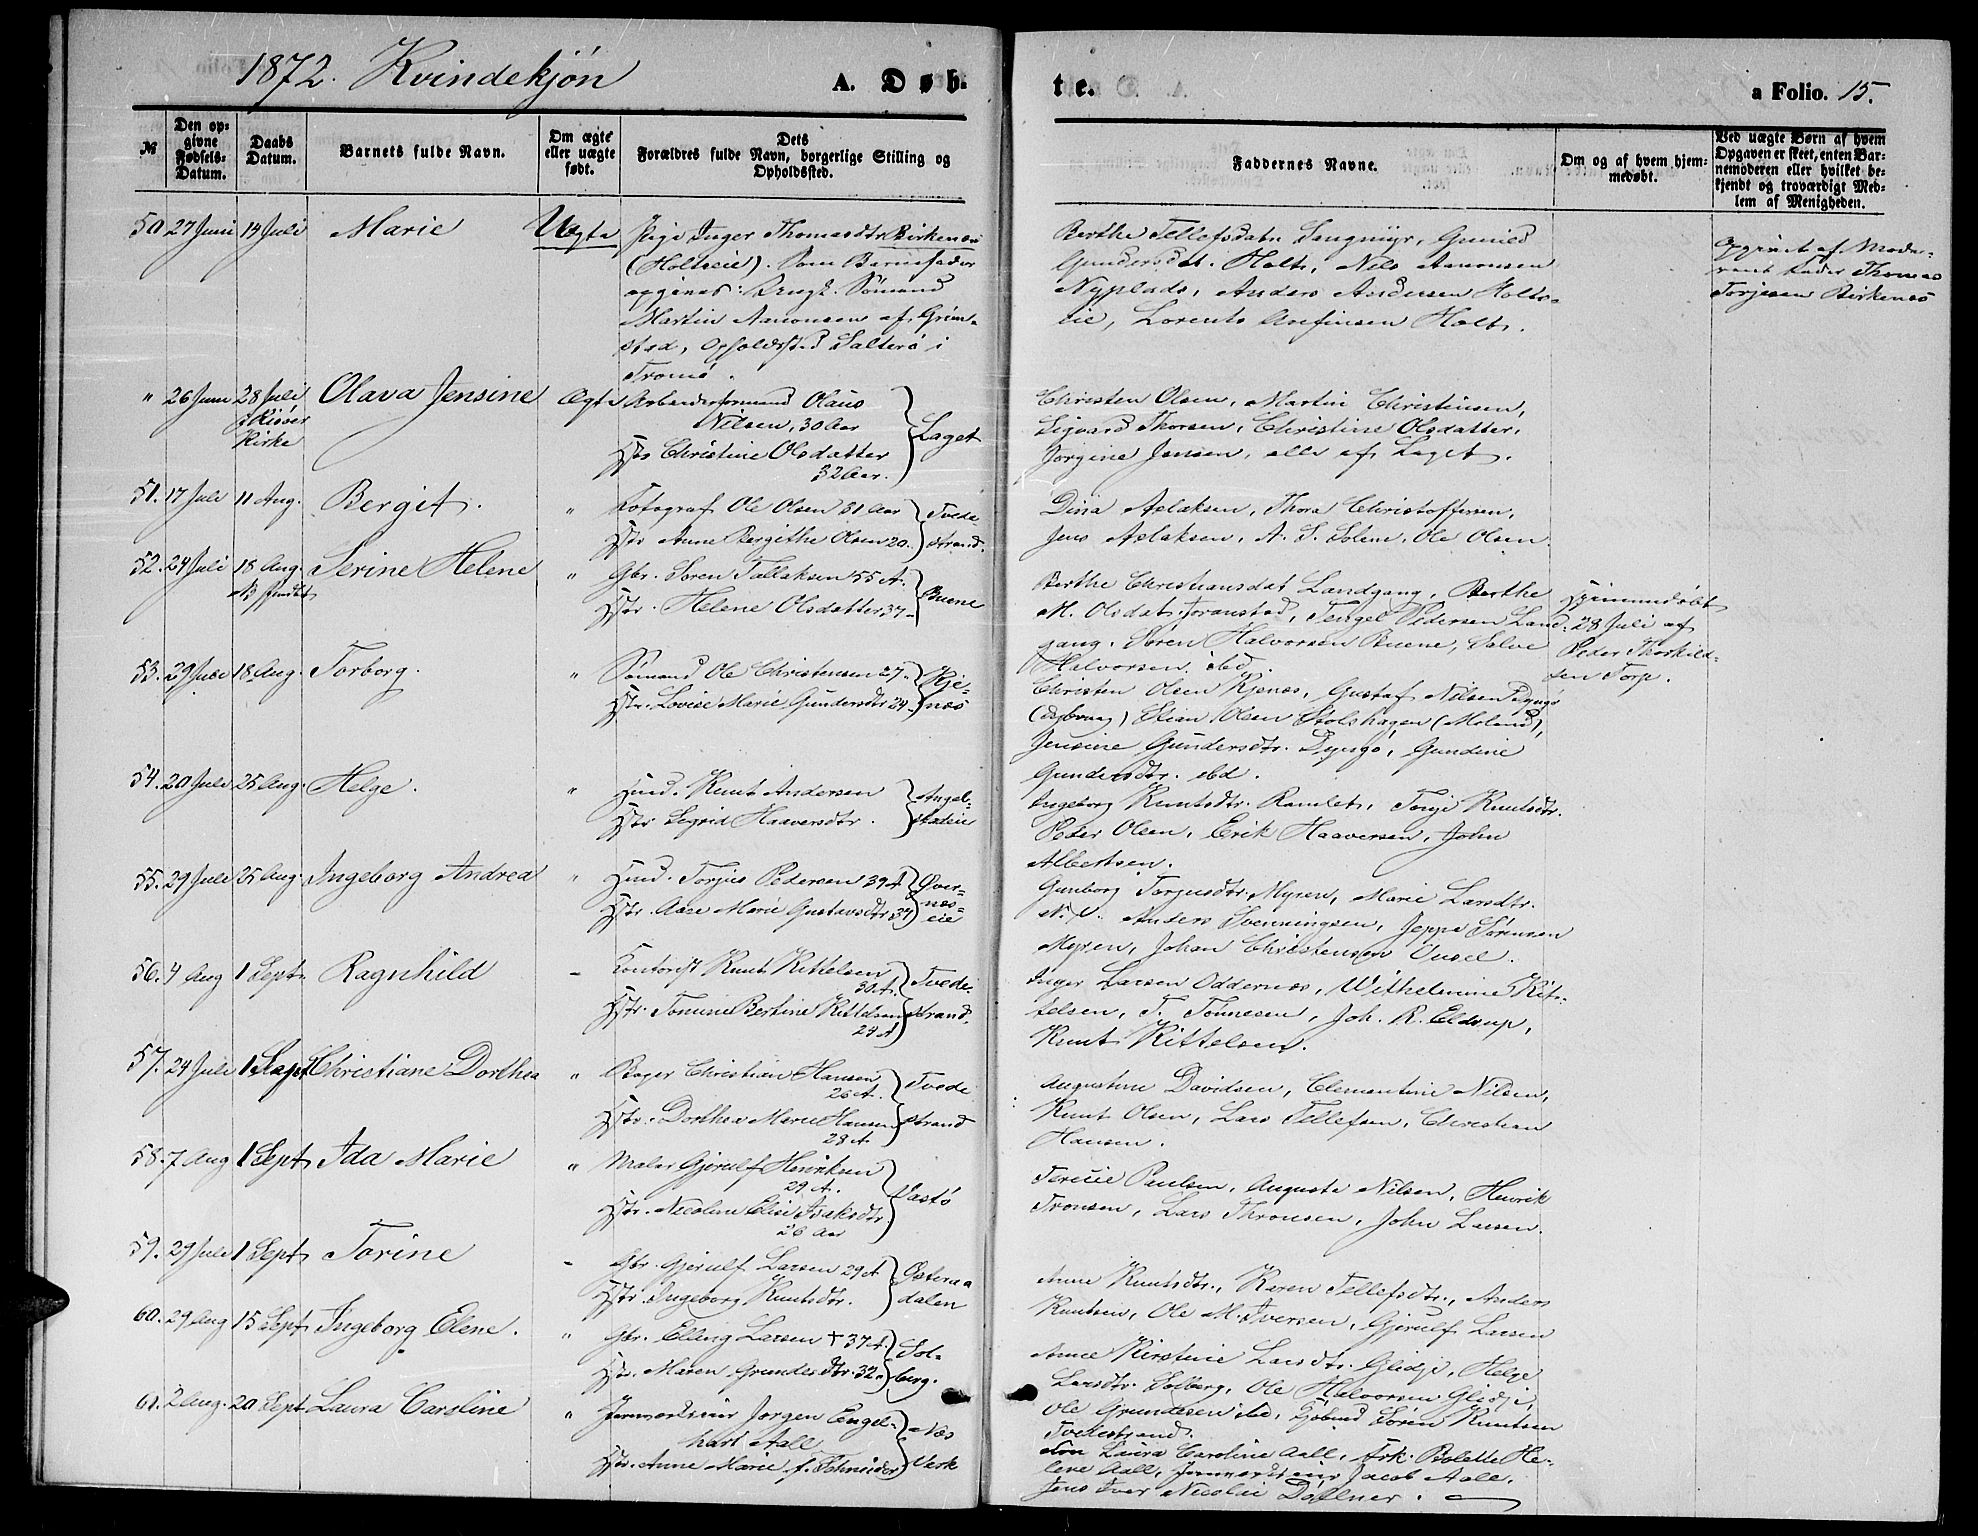 1872. Kvindekjøn
A. Døb-
te.
a Folio. 15.
№
Den op-
givne
Fødsels-
Datum.
Daabs
Datum.
Barnets fulde Navn.
Om ægte
eller uægte
født.
Dets
Forældres fulde Navn, borgerlige Stilling og
Opholdssted.
Faddernes Navne.
Om og af hvem hjem-
medøbt.
Ved uægte Børn af hvem
Opgaven er skeet, enten Bar-
nemoderen eller hvilket be-
kjendt og troværdigt Med-
lem af Menigheden.
50 27 Juni 14 Juli Marie Uægte Pige Inger Thomasdtr Birkenæs
(Holtseie). Som Barnefader
opgives: Sømand
Martin Aanonsen af Grim-
stad, Opholdssted Salterø i
Tromø.
Berthe Tellefsdatr Langmyr, Gunild
Gundersdat. Holt, Nils Aanonsen
Nyplads, Anders Andersen Holts-
eie, Lorents Arefinsen Holt.
Opgivet af Mode-
rens Fader Thomas
Torjesen Birkenæs
" 26 Juni 28 Juli Olava Jensine Ægte Arbeidsformand Olaus
i Risøer
Kirke
Nilsen, 30 Aar
Hstr Christine Olsdatter
32 Aar.
Laget
Christen Olsen, Martin Christensen,
Sigvard Thorsen, Christine Olsdatter,
Jorgine Jensen, alle af Laget.
51. 17 Juli 11 Aug. Bergit. " Fotograf Ole Olsen 31 Aar
Hstr Anne Bergithe Olsen 20.
Tvede-
strand.
Dina Aslaksen, Thora Christoffersen,
Jens Aslaksen, A. S. Solem, Ole Olsen.
52. 24 Juli 18 Aug. Serine Helene " Gbr. Søren Tallaksen 55 A.
Hstr. Helene Olsdatter 37
Buene
Berthe Christiansdat Landgang, Berthe
M. Olsdat. Goranstad, Tengel Pedersen Land-
gang. Søren Halvorsen Buene, Salve
Halvorsen ibd.
Hjemmedøbt
28 Juli af
Peder Thorkild-
sen Torp.
53. 29 Juli 18 Aug. Torborg. " Sømand Ole Christensen 27
Hstr. Lovise Marie Gundersdtr 24
Kje-
næs
Christen Olsen Kjenæs, Gustaf Nilsen Dyngø
(Dybvaag) Stian Olsen Stolshagen (Moland),
Jensine Gundersdtr. Dyngø, Gundine
Gundersdtr. ibd.
54. 20 Juli 25 Aug. Helge. " Hmd. Knut Andersen
Hstr Sigrid Haaversdtr.
Angel-
stadeie
Ingeborg Knutsdtr. Ramlet, Torje Knutsdtr.
Peder Olsen, Erik Haaversen, John
Albertsen.
55. 29 Juli 25 Aug. Ingeborg Andrea " Hmd. Torjus Pedersen 39 A
Hstr. Aase Marie Gustavsdtr 34
Over-
næs-
eie
Gunborg Torjusdtr. Myren, Marie Larsdtr.
Anders Svenningsen, Jeppe Sørensen
Myren, Johan Christensen Ousel.
56. 4 Aug 1 Septr. Ragnhild - Kontorist Knut Kittelsen
30 A.
Hstr. Tomine Bertine Kittelsen
24 A
Tvede-
strand.
Inger Larsen Oddernæs, Wilhelmine Kit-
telsen, T. Tønnesen, Joh. R. Eldrup,
Knut Kittelsen.
57. 24 Juli 1 Sept Christiane Dorthea " Bager Christian Hansen
26 A.
Hstr. Dorthea Marie Hansen
28 A
Tvede
strand
Augustine Davidsen, Clementine Nilsen,
Knut Olsen, Lars Tellefsen, Christian
Hansen.
58. 7 Aug 1 Sept Ida Marie " Maler Gjerulf Henriksen
29 A.
Hstr. Nicoline Elise Isaksdtr
26 Aar
Vastø
Paulsen, Augusta Nilsen, Henrik
Tronsen, Lars Thronsen, John Larsen.
59. 29 Juli 1 Sept Torine - Gbr. Gjerulf Larsen 29 A
Hstr. Ingeborg Knutsdtr.
Østeraa
dalen
Anne Knutsdtr., Karen Tellefsdtr., Anders
Knutsen, Ole M. Iversen, Gjerulf Larsen
60. 29 Aug 15 Sept Ingeborg Elene. " Gbr. Elling Larsen + 37 A.
Hstr. Maren Grundesdtr. 32
Sol-
berg.
Anne Kirstine Larsdtr. Glidje, Helge
Larsdtr. Solberg, Ole Halvorsen Glidje,
Ole Grundesen ibd, Søren Knutsen
Tvedestrand.
61. 2 Aug. 20 Sept Laura Caroline " Jernværkseier Jørgen Engel-
hart Aall
Hstr. Anne Marie f. Schnider
Næs
Værk
Laura Caroline Aall, Frk. Bolette He-
lene Aall, Jernværkseier Jacob Aall,
Jens Iver Nicolai Døllner.